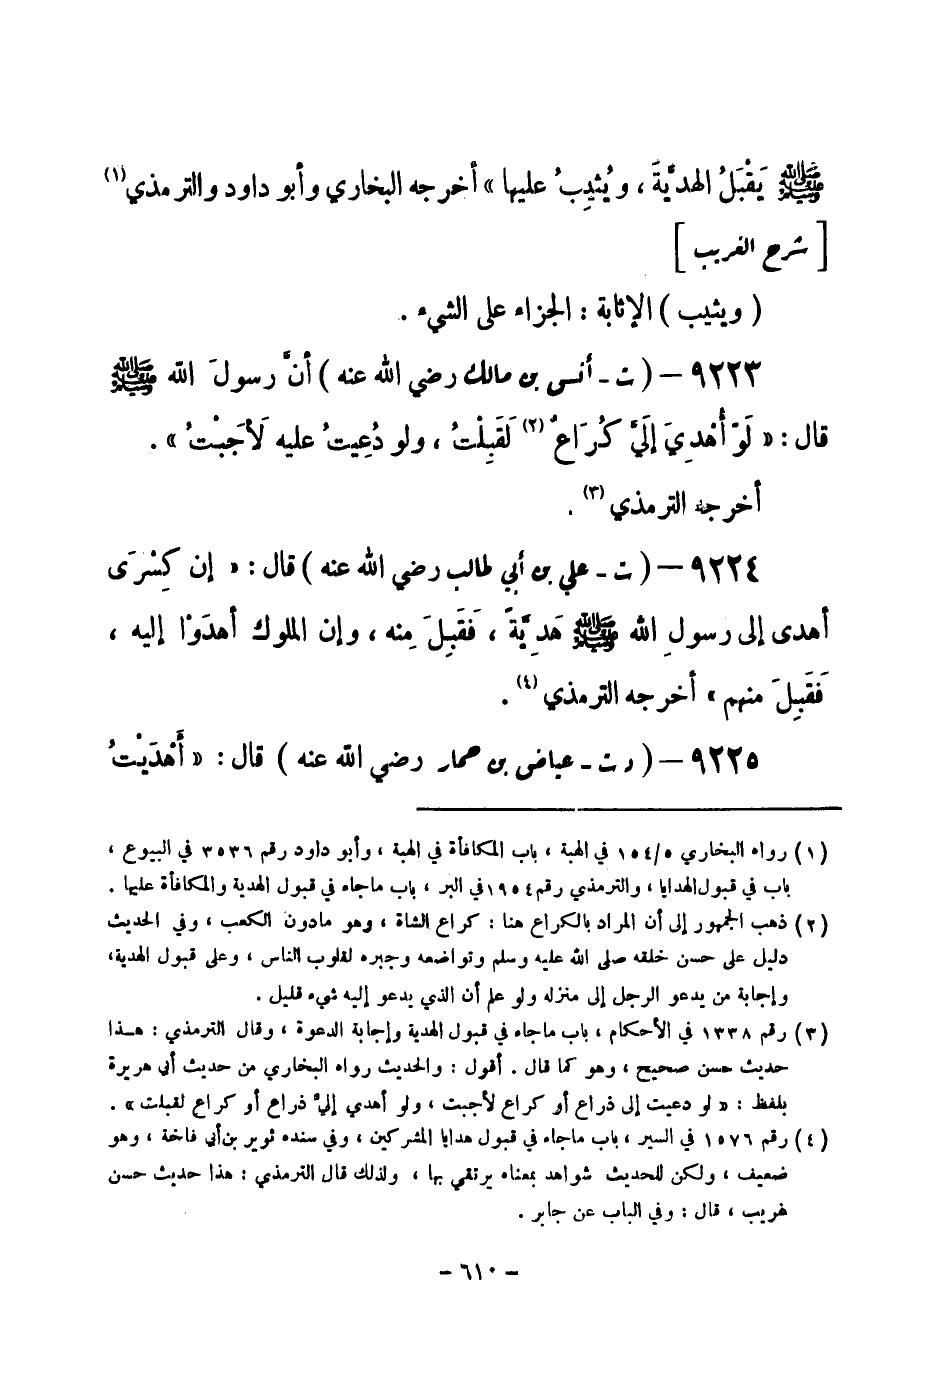 ﷺ يَقْبَلُ الهديَّةَ ، ويُثيبُ عليها » أخرجه البخاري وأبو داود والترمذي (١)
[ شرح الغريب ]
( ويثيب ) الإثابة : الجزاء على الشيء .
٩٢٢٣ – ( ت ـ أنس بن مالك رضي الله عنه ) أنَّ رسولَ الله ﷺ
قال : « لَوْ أُهْدِيَ إلَيَّ كُرَاعٌ (٢) لَقَبِلْتُ ، ولو دُعِيتُ عليه لَأجَبْتُ » .
أخرجه الترمذي (٣) .
٩٢٢٤ – ( ت ـ علي بن أبي طالب رضي الله عنه ) قال : « إن كِسْرَى
أهدى إلى رسولِ الله ﷺ هَدِيَّةً ، فَقَبِلَ منه ، وإن الملوك أهدَوْا إليه ،
فَقَبِلَ منهم » أخرجه الترمذي (٤) .
٩٢٢٥ – ( د ت ـ عياض بن حمار رضي الله عنه ) قال : « أَهْدَيْتُ
(١) رواه البخاري ١٥٤/٥ في الهبة ، باب المكافأة في الهبة ، وأبو داود رقم ٣٥٣٦ في البيوع ،
باب في قبول الهدايا ، والترمذي رقم ١٩٥٤ في البر ، باب ماجاء في قبول الهدية والمكافأة عليها .
(٢) ذهب الجمهور إلى أن المراد بالكراع هنا : كراع الشاة ، وهو مادون الكعب ، وفي الحديث
دليل على حسن خلقه صلى الله عليه وسلم وتواضعه وجبره لقلوب الناس ، وعلى قبول الهدية،
وإجابة من يدعو الرجل إلى منزله ولو علم أن الذي يدعو إليه شيء قليل .
(٣) رقم ١٣٣٨ في الأحكام ، باب ماجاء في قبول الهدية وإجابة الدعوة ، وقال الترمذي : هـذا
حديث حسن صحيح ، وهو كما قال . أقول : والحديث رواه البخاري من حديث أبي هريرة
بلفظ : « لو دعيت إلى ذراع أو كراع لأجبت ، ولو أهدي إليَّ ذراع أو كراع لقبلت » .
(٤) رقم ١٥٧٦ في السير ، باب ماجاء في قبول هدايا المشركين ، وفي سنده ثوير بن أبي فاختة ، وهو
ضعيف ، ولكن للحديث شواهد بمعناه يرتقي بها ، ولذلك قال الترمذي : هذا حديث حسن
غريب ، قال : وفي الباب عن جابر .
- ٦١٠ -